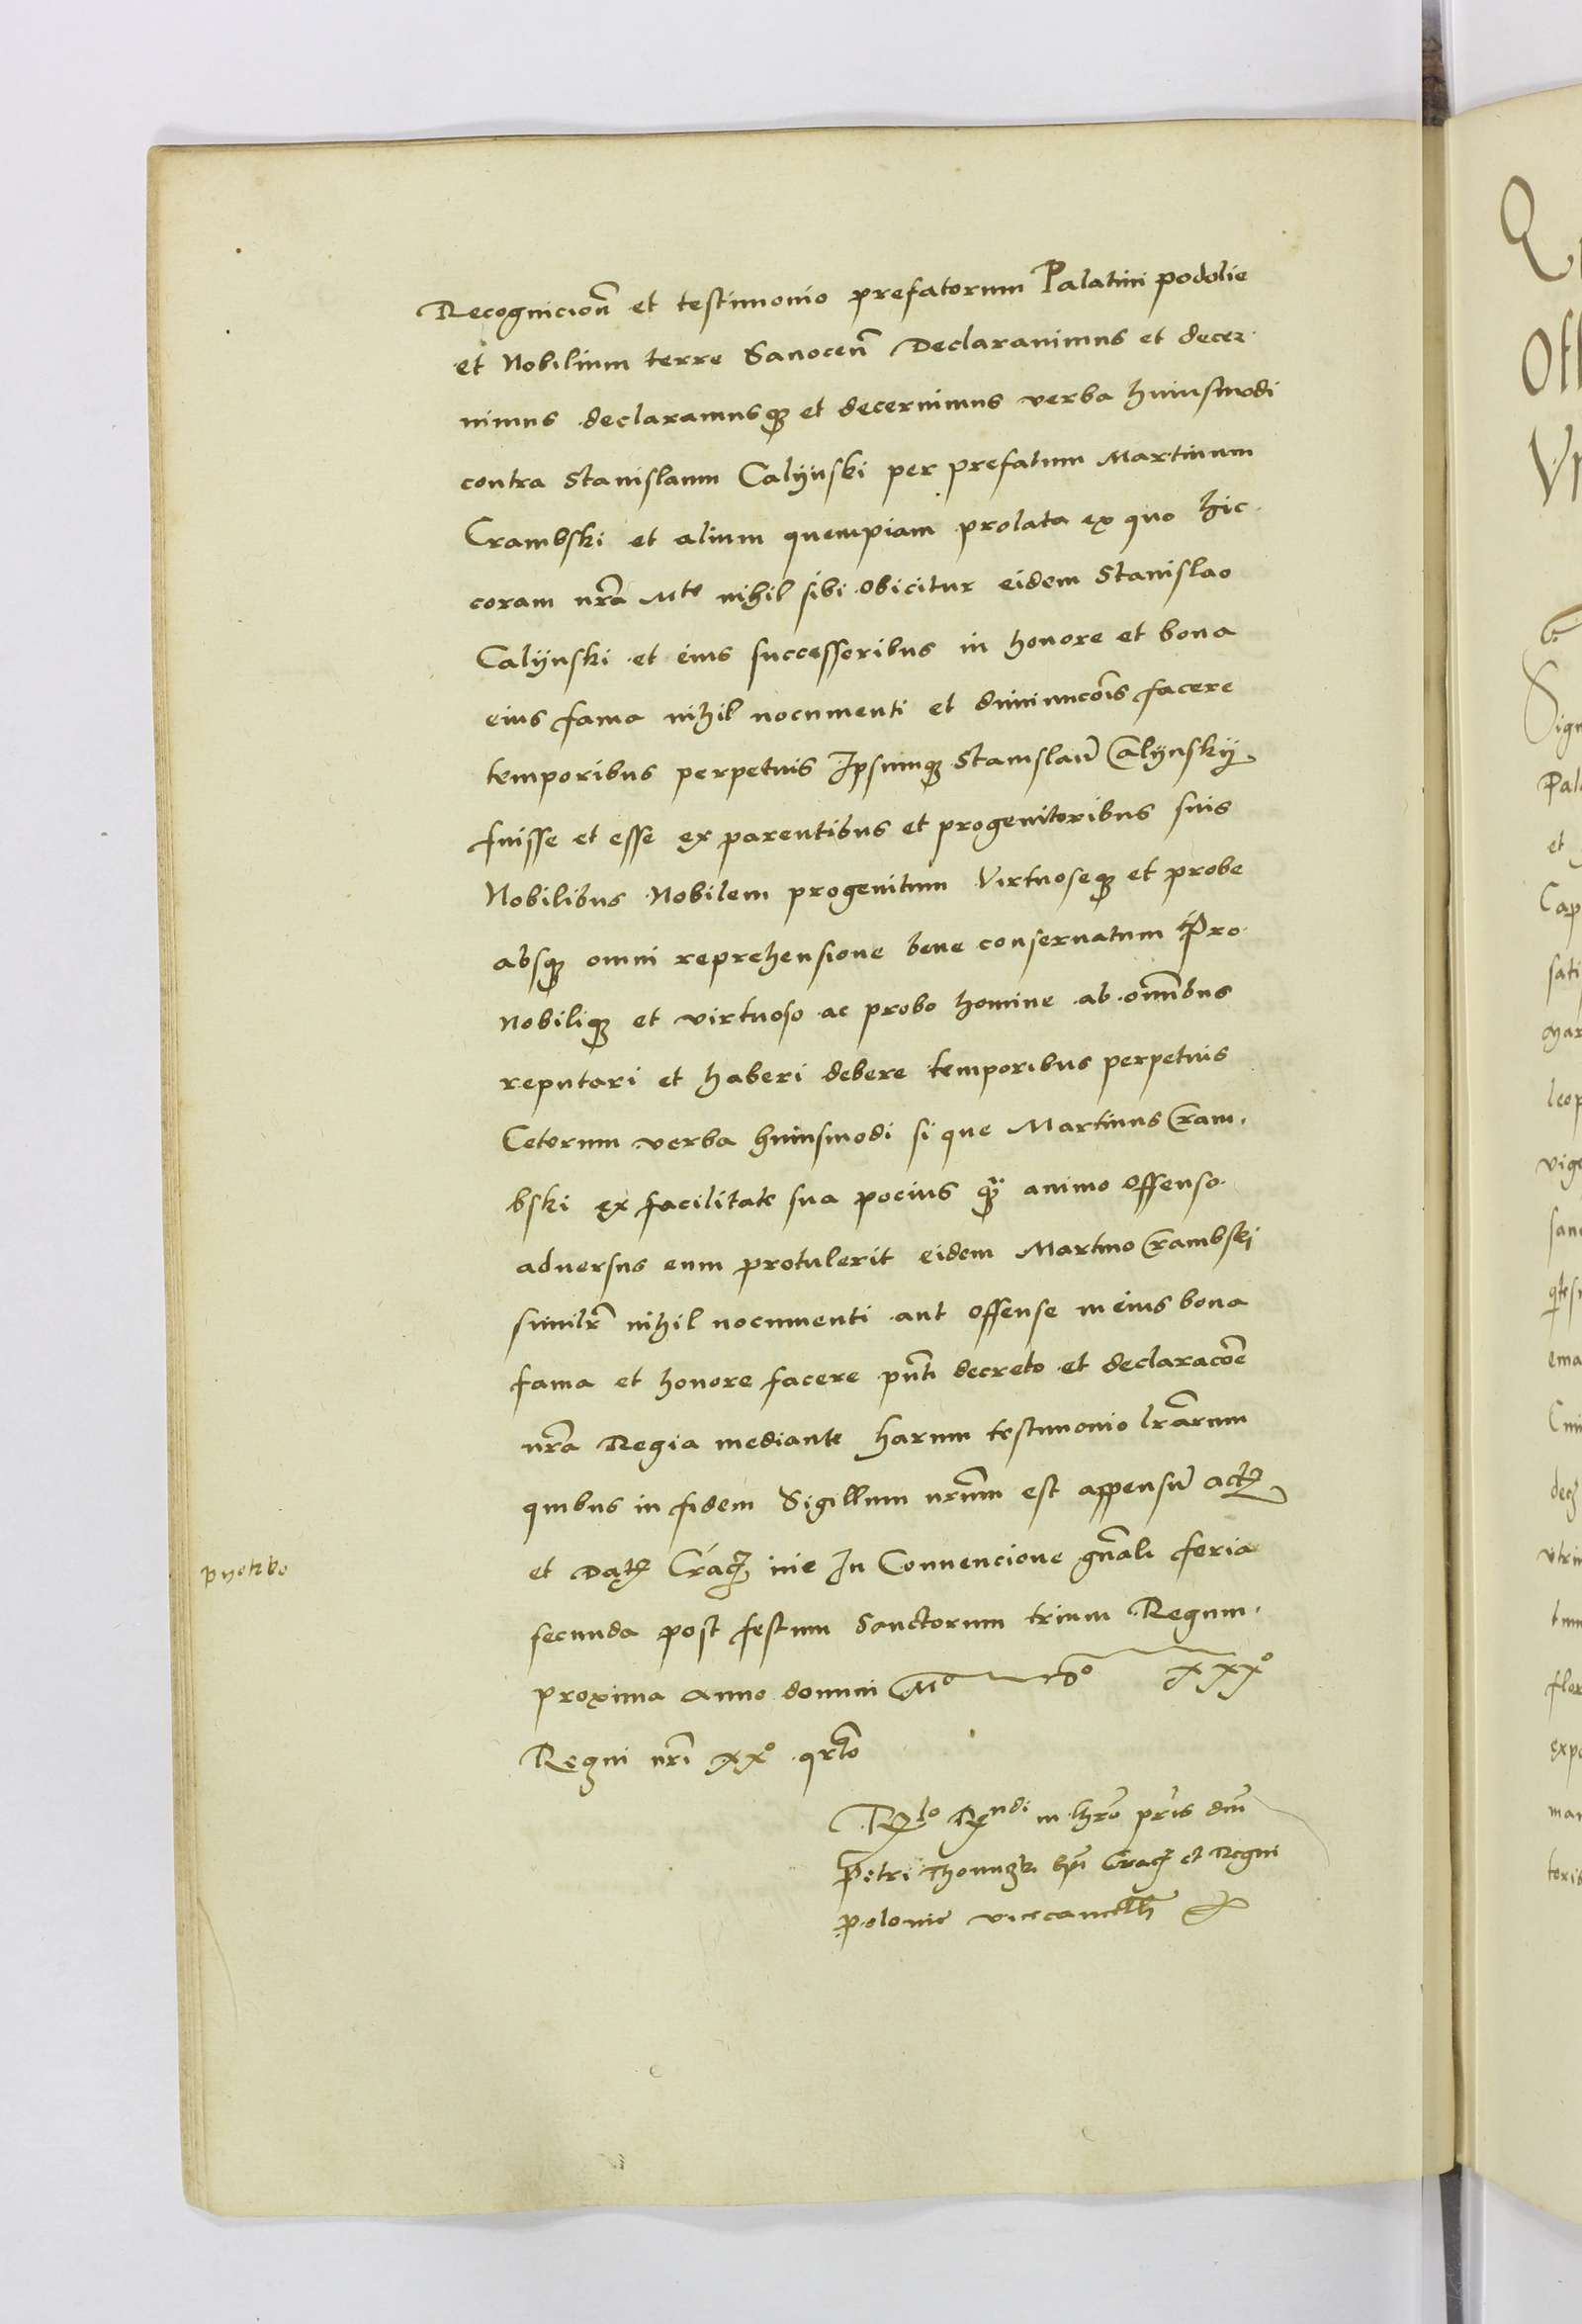 Recognicion̄ et testimonio prefatorum Palatini podolie
et Nobilium terre Sanocen̄ Declarauimus et decer
nimus declaramusqꝫ et decernimus verba huiusmodi
contra Stanislaum Calijnski per prefatum Martinum
Crambski et alium quempiam prolata ex quo hic
coram nrā Mte nihil sibi obicitur eidem Stanislao
Calijnski et eius successoribus in honore et bona
eius fama nihil nocumenti et diminucōis facere
temporibus perpetuis Ipsumqꝫ Stanislaū Calijnskij
fuisse et esse ex parentibus et progenitoribus suis
Nobilibus Nobilem progenitum Virtuoseqꝫ et probe
absqꝫ omni reprehensione bene conseruatum Pro
Nobiliqꝫ et virtuoso ac probo homine ab om̄ibus
reputari et haberi debere temporibus perpetuis
Ceterum verba huiusmodi si que Martinus Cram
bski ex facilitate sua pocius qꝫ̄ animo offenso
aduersus eum protulerit eidem Martino Crambski
similr̄ nihil nocumenti aut offense in eius bona
fama et honore facere pn̄ti decreto et declaracōe
nrā Regia mediante harum testimonio lrārum
quibus in fidem Sigillum nrūm est appensū Actꝫ
et Datꝫ Cracꝫ in Conuencione gnāli feria
secunda post festum Sanctorum trium Regum
proxima Anno domini Mo do xxxo
Regni nrī xxo qrto
Rlo Rndi in χρ̄o pr̄is dn̄i
Petri Thomiczki Ep̄i Cracꝫ et Regni
polonie vicecancellr̄